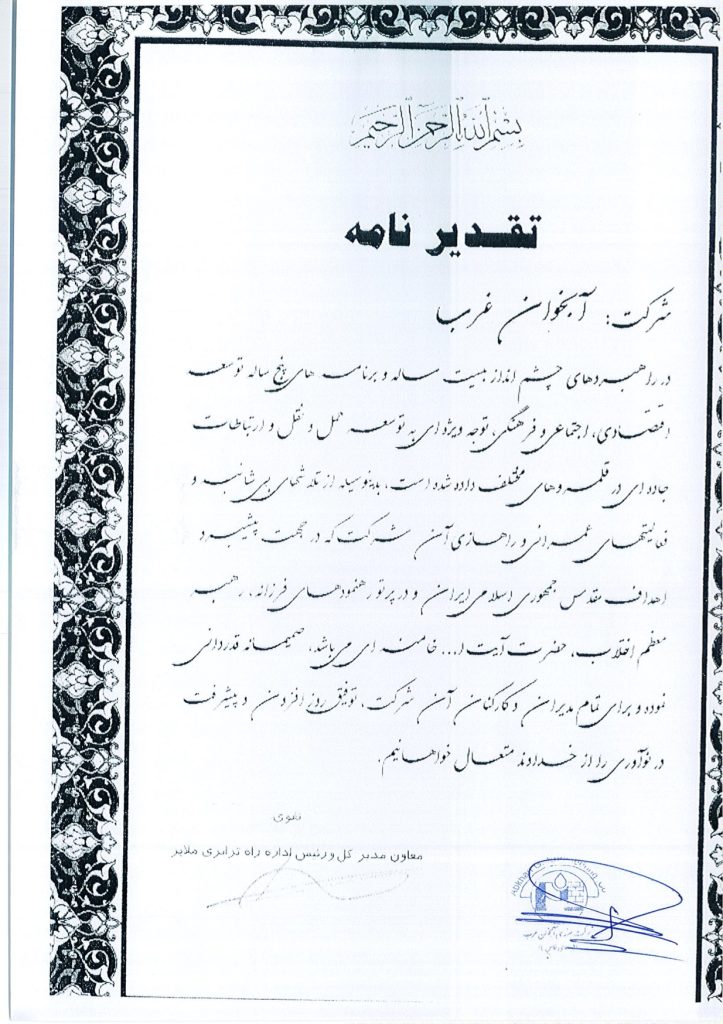 بسم الله الرحمن الرحیم
تقدیر نامه
شرکت: آبخوان غرب
در راهبردهای چشم انداز بیست ساله و برنامه های پنج ساله توسعه
اقتصادی، اجتماعی و فرهنگی، توجه ویژه ای به توسعه حمل و نقل و ارتباطات
جاده ای در قلمروهای مختلف داده شده است، بدینوسیله از تلاشهای بی شائبه و
فعالیتهای عمرانی و راهسازی آن شرکت که در جهت پیشبرد
اهداف مقدس جمهوری اسلامی ایران و در پرتو رهنمودهای فرزانه، رهبر
معظم انقلاب، حضرت آیت ا... خامنه ای می باشد، صمیمانه قدردانی
نموده و برای تمام مدیران و کارکنان آن شرکت، توفیق روز افزون و پیشرفت
در نوآوری را از خداوند متعال خواهانیم.
تقوی
معاون مدیر کل و رئیس اداره راه ترابری ملایر